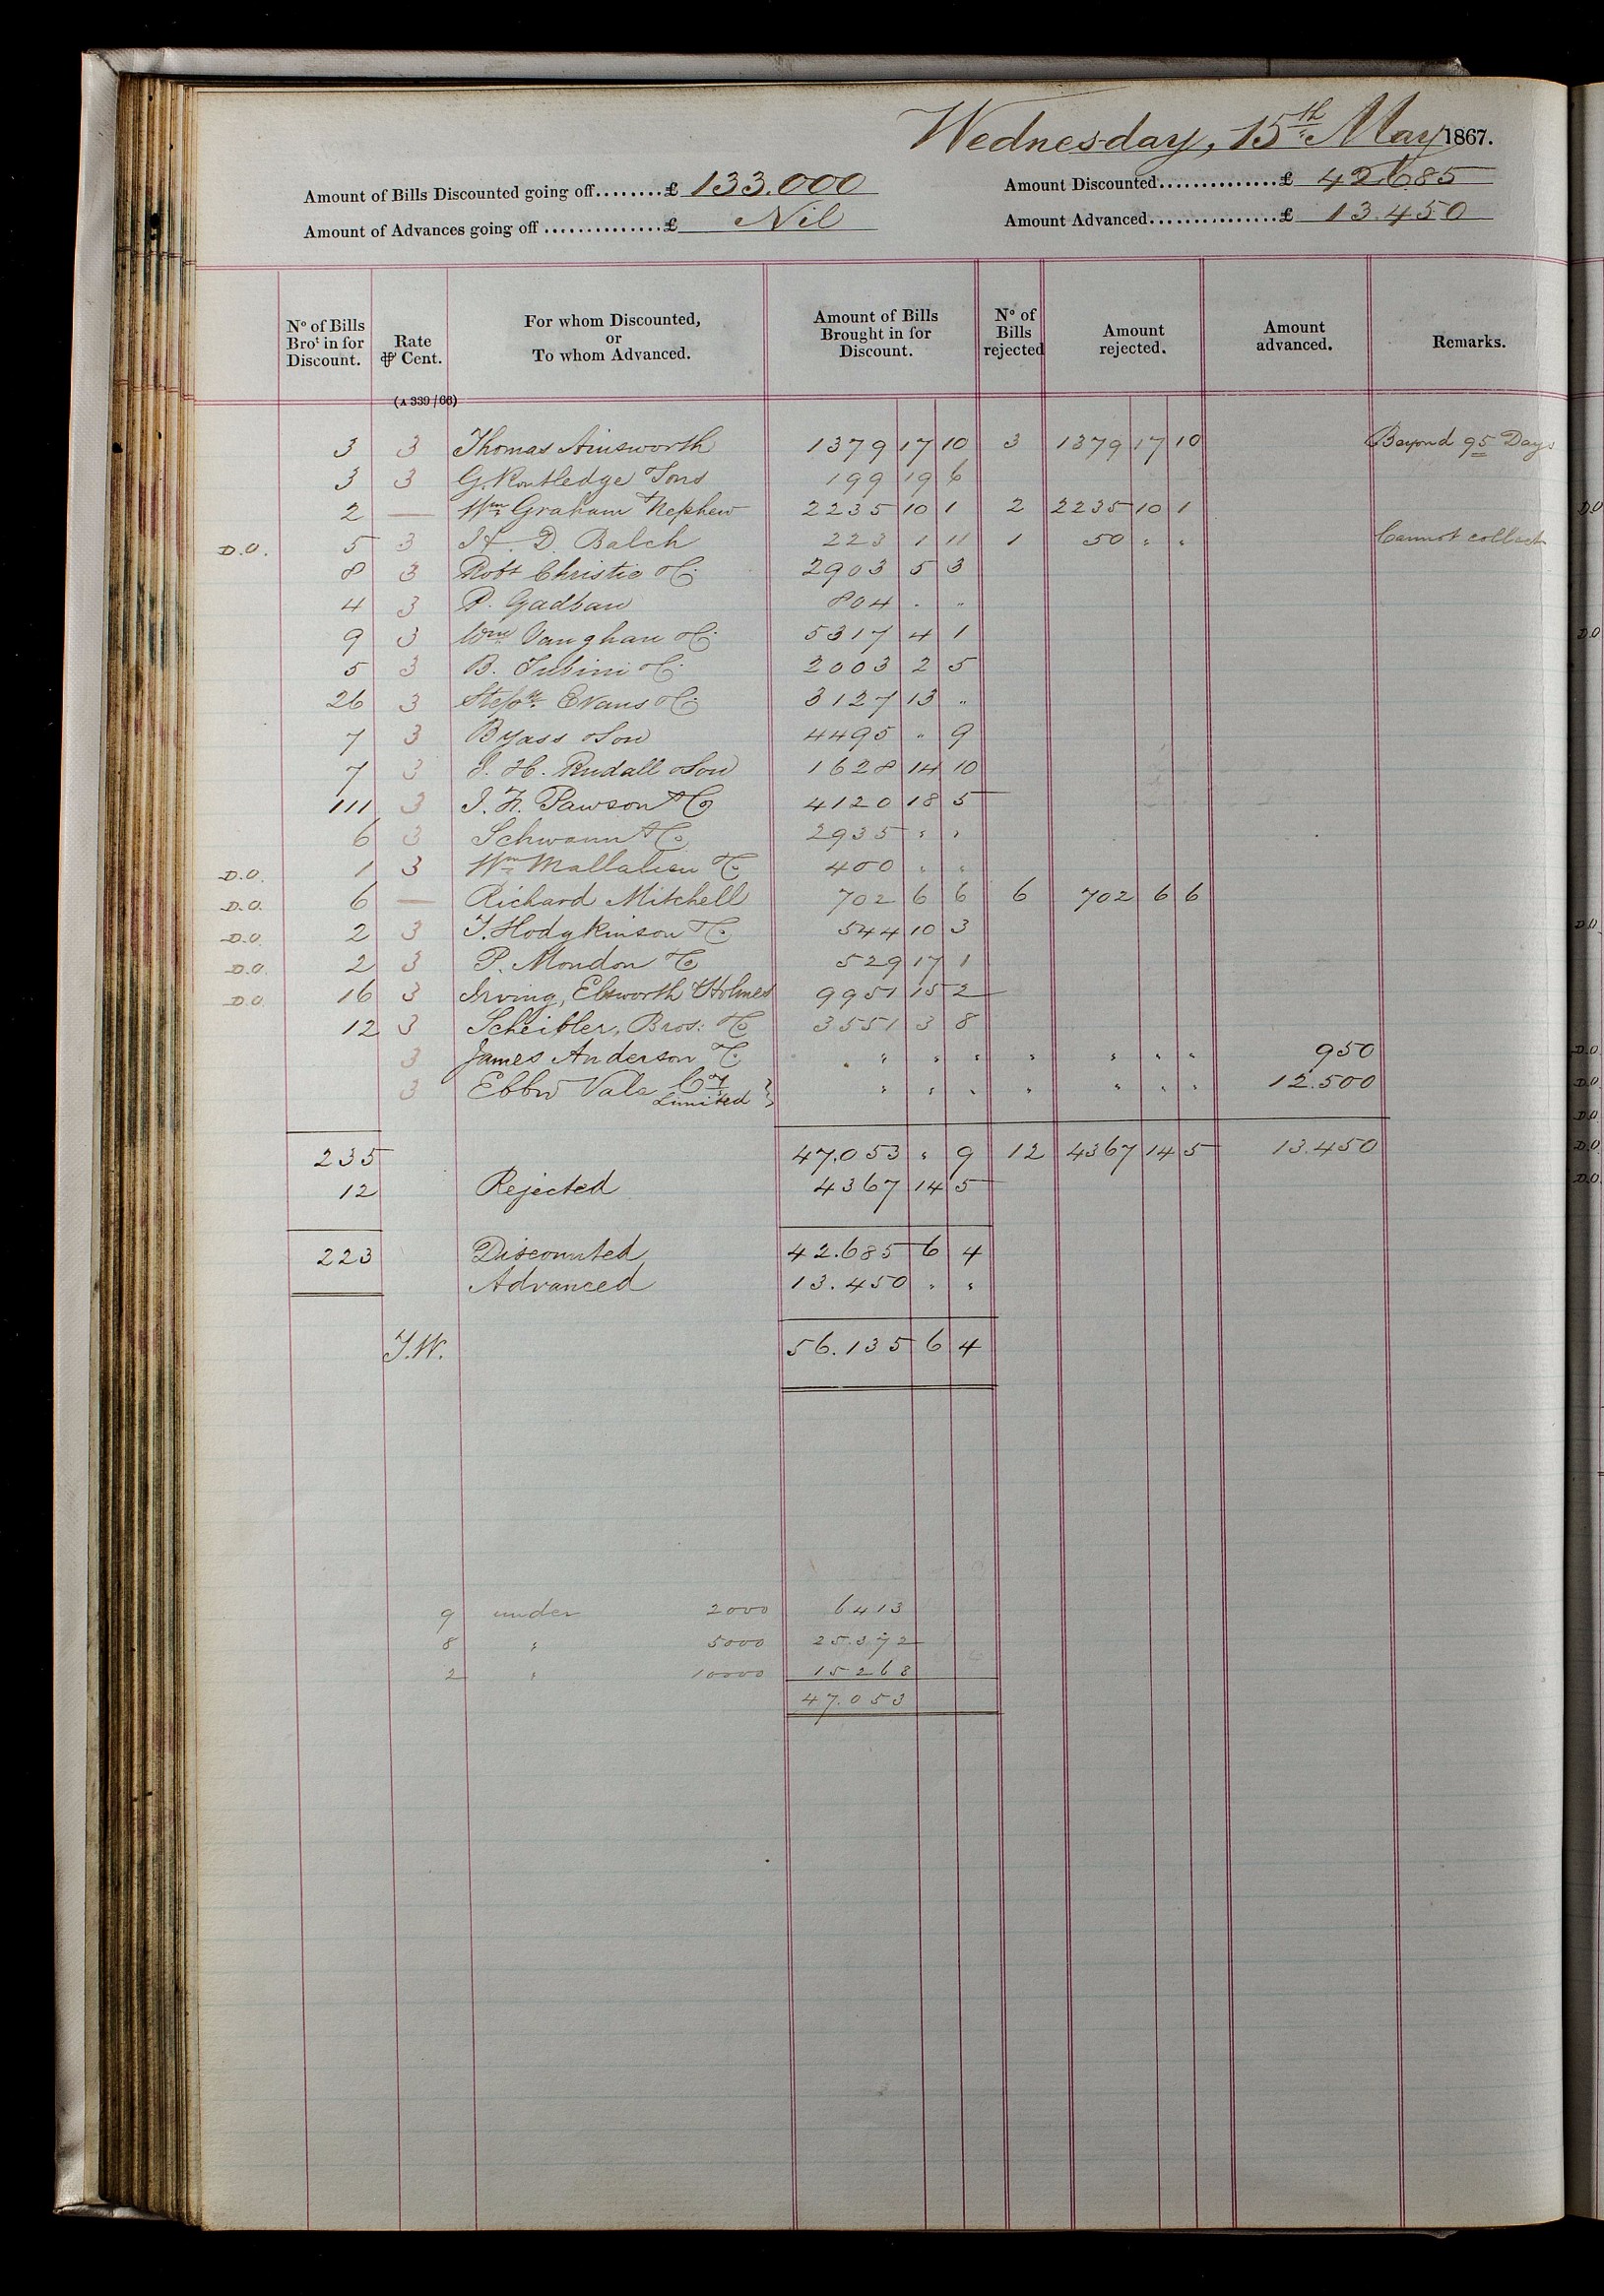 Wednesday, 15th May 1867.
Amount of Bills Discounted going off........£ 133.000
Amount Discounted..............£ 42685
Amount of Advances going off..............£ Nil
Amount Advanced...............£ 13.450
No of Bills Brot in for Discount.
Rate ⅌ Cent.
For whom Discounted, or To whom Advanced.
Amount of Bills Brought in for Discount.
No of Bills rejected
Amount rejected.
Amount advanced.
Remarks.
(A 339/66)
3 3 Thomas Ainsworth 1379 17 10 3 1379 17 10 Beyond 95 Days
3 3 G. Routledge & Sons 199 19 6
2 — Wm Graham Nephew 2235 10 1 2 2235 10 1
D.O. 5 3 H. D. Balch 223 1 11 1 50 " " Cannot collect
8 3 Robt Christie & Co. 2903 5 3
4 3 P. Gadban 804 " "
9 3 Wm Vaughan & Co. 5317 4 1
5 3 B. Tubini & Co. 2003 2 5
26 3 Stepn Evans & Co. 3127 13 "
7 3 Byass & Son 4495 " 9
7 3 J. H. Rudall & Son 1628 14 10
111 3 J. F. Pawson & Co 4120 18 5
6 3 Schwann & Co. 2935 " "
D.O. 1 3 Wm Mallalieu & Co. 400 " "
D.O. 6 — Richard Mitchell 702 6 6 6 702 6 6
D.O. 2 3 T. Hodgkinson & Co. 544 10 3
D.O. 2 3 P. Mondon & Co 529 17 1
D.O. 16 3 Irving, Ebsworth & Holmes 9951 15 2
12 3 Scheibler, Bros: & Co 3551 3 8
3 James Anderson & Co. " " " " " " " 950
3 Ebbw Vale Cy Limited } " " " " " " " 12.500
235 47.053 " 9 12 4367 14 5 13.450
12 Rejected 4367 14 5
223 Discounted 42.685 6 4
Advanced 13.450 " "
J.W. 56.135 6 4
9 under 2000 6413
8 " 5000 25.372
2 " 10000 15268
47.053
D.O.
D.O
D.O.
D.O.
D.O.
D.O.
D.O.
D.O.